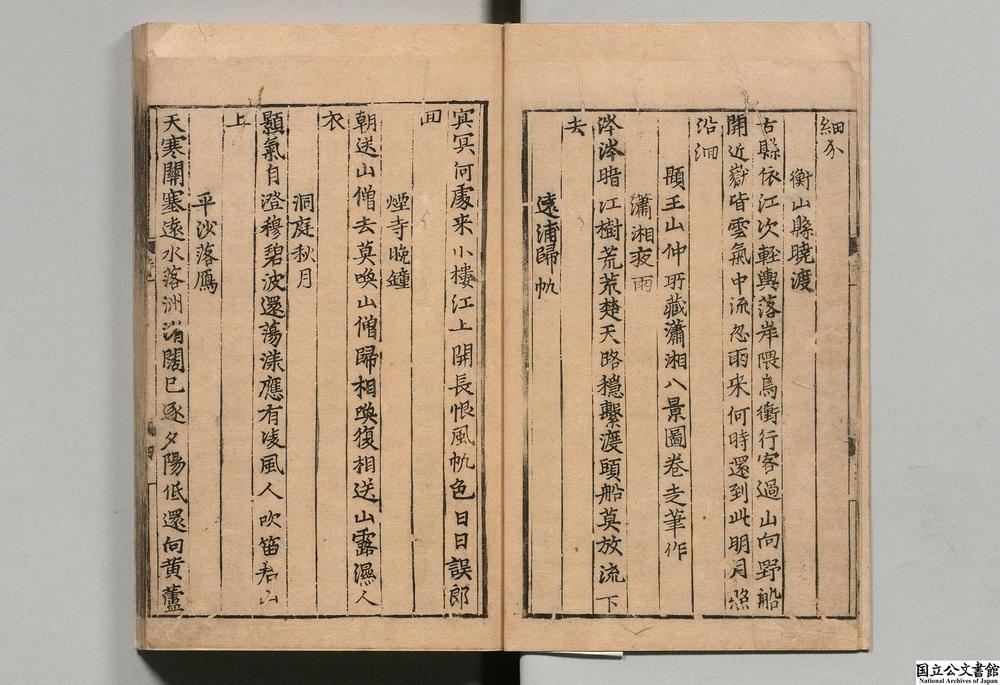 細分
衡山縣曉渡
古縣依江次輕輿落岸隈鳥衝行客過山向野船
開近嶽皆雲氣中流忽雨来何時還到此明月照
沿洄
題王山仲所藏瀟湘八景圖卷走筆作
瀟湘夜雨
涔涔暗江樹荒荒楚天路穩繫渡頭船莫放流下
去
遠浦歸帆
冥冥何處来小樓江上開長恨風帆色日日誤郎
回
煙寺晚鐘
朝送山僧去莫喚山僧歸相喚復相送山露濕人
衣
洞庭秋月
顥氣自澄穆碧波還蕩漾應有凌風人吹笛君山
上
平沙落鴈
天寒關塞遠水落洲渚闊已逐夕陽低還向黄蘆
国立公文書館
National Archives of Japan